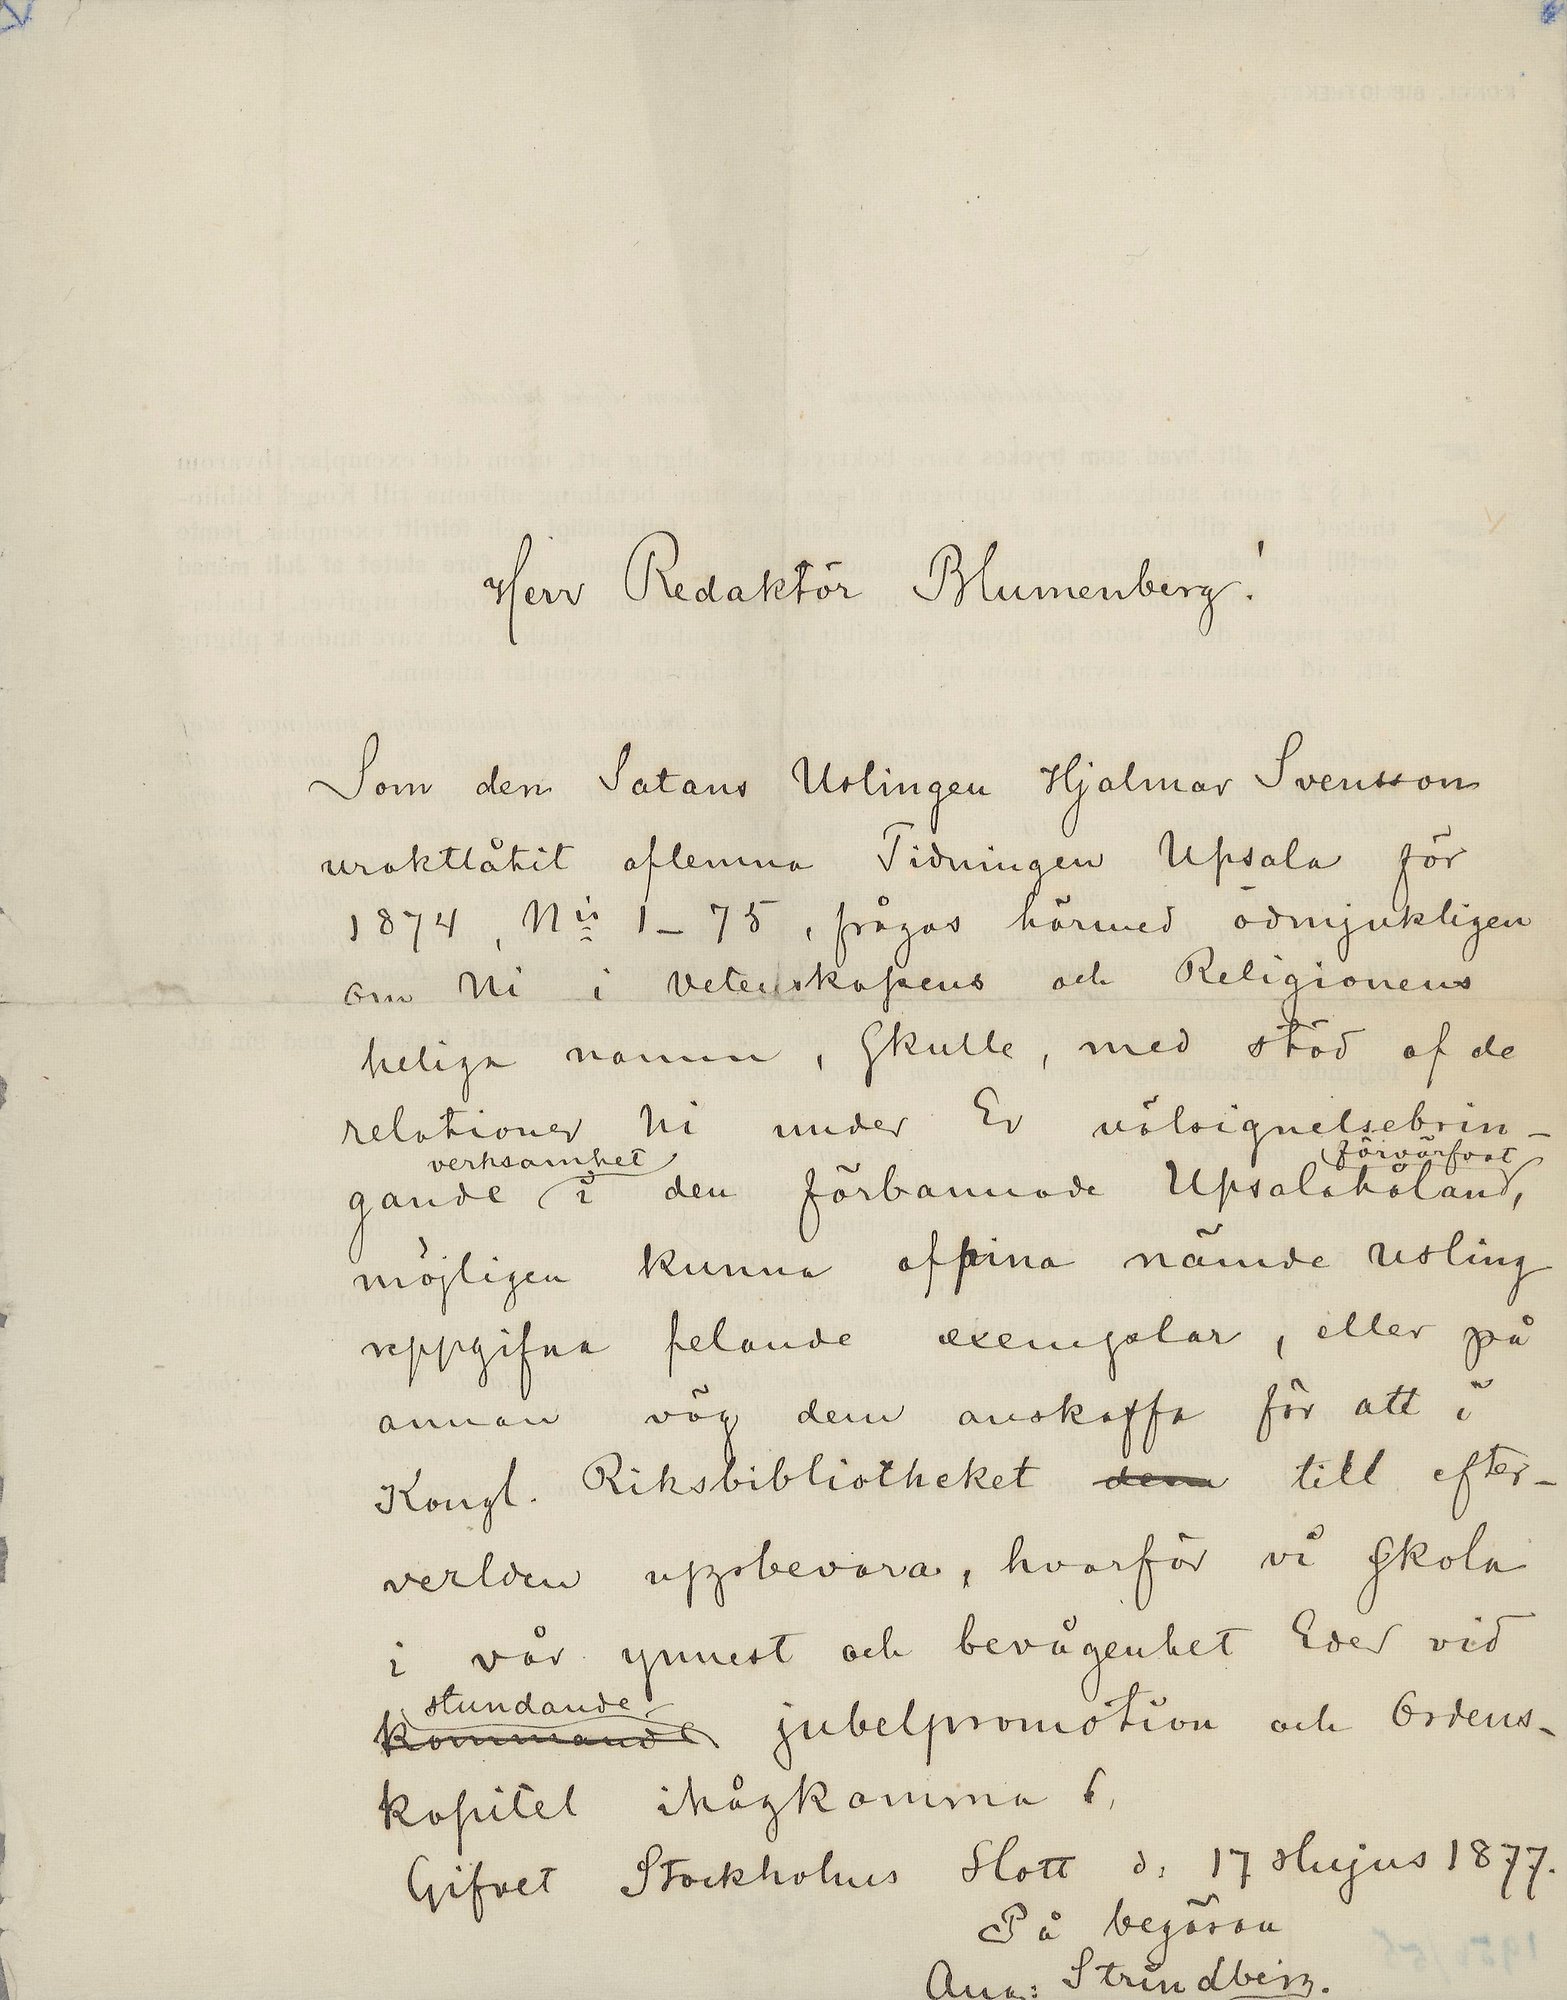 Herr Redaktör Blumenberg!
Som den Satans Uslingen Hjalmar Svensson
uraktlåtit aflemna Tidningen Upsala för
1874, N:is 1–75, frågas härmed ödmjukligen
om Ni i Vetenskapens och Religionens
heliga namn, Skulle, med stöd af de
relationer Ni under Er välsignelsebrin-
verksamhet förvärfvat
gande i den förbannade Upsalahålan,
möjligen kunna afpina nämde usling
uppgifna felande exemplar, eller på
annan väg dem anskaffa för att i
Kongl. Riksbibliotheket dem till efter-
verlden uppbevara, hvarför vi Skola
i vår ynnest och bevågenhet Eder vid
stundande
kommande jubelpromotion och Ordens-
kapitel ihågkomma
Gifvet Stockholms Slott d: 17 Hujus 1877.
På begäran
Aug: Strindberg.